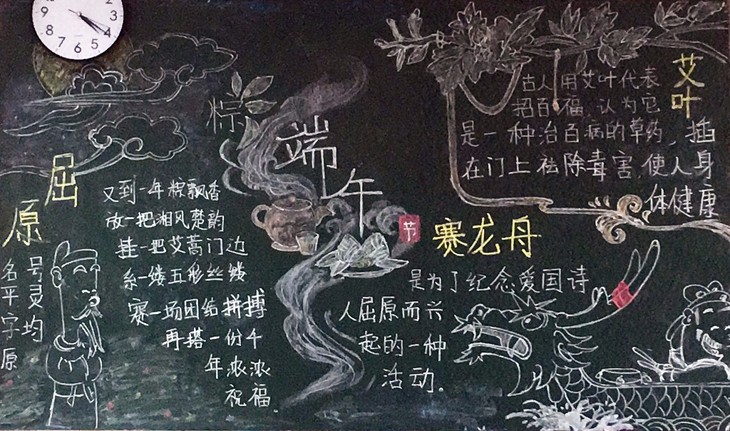 粽
端午
节
屈原
名平字原
号灵均
又到一年粽飘香
放一把湘风楚韵
挂一把艾蒿门边
系一缕五彩丝线
赛一场团结拼搏
再搭一份千
年浓浓
祝福.
艾叶
古人用艾叶代表
招百福.认为它
是一种治百病的草药，插
在门上祛除毒害,使人身
体健康
赛龙舟
是为了纪念爱国诗
人屈原而兴
起的一种
活动.